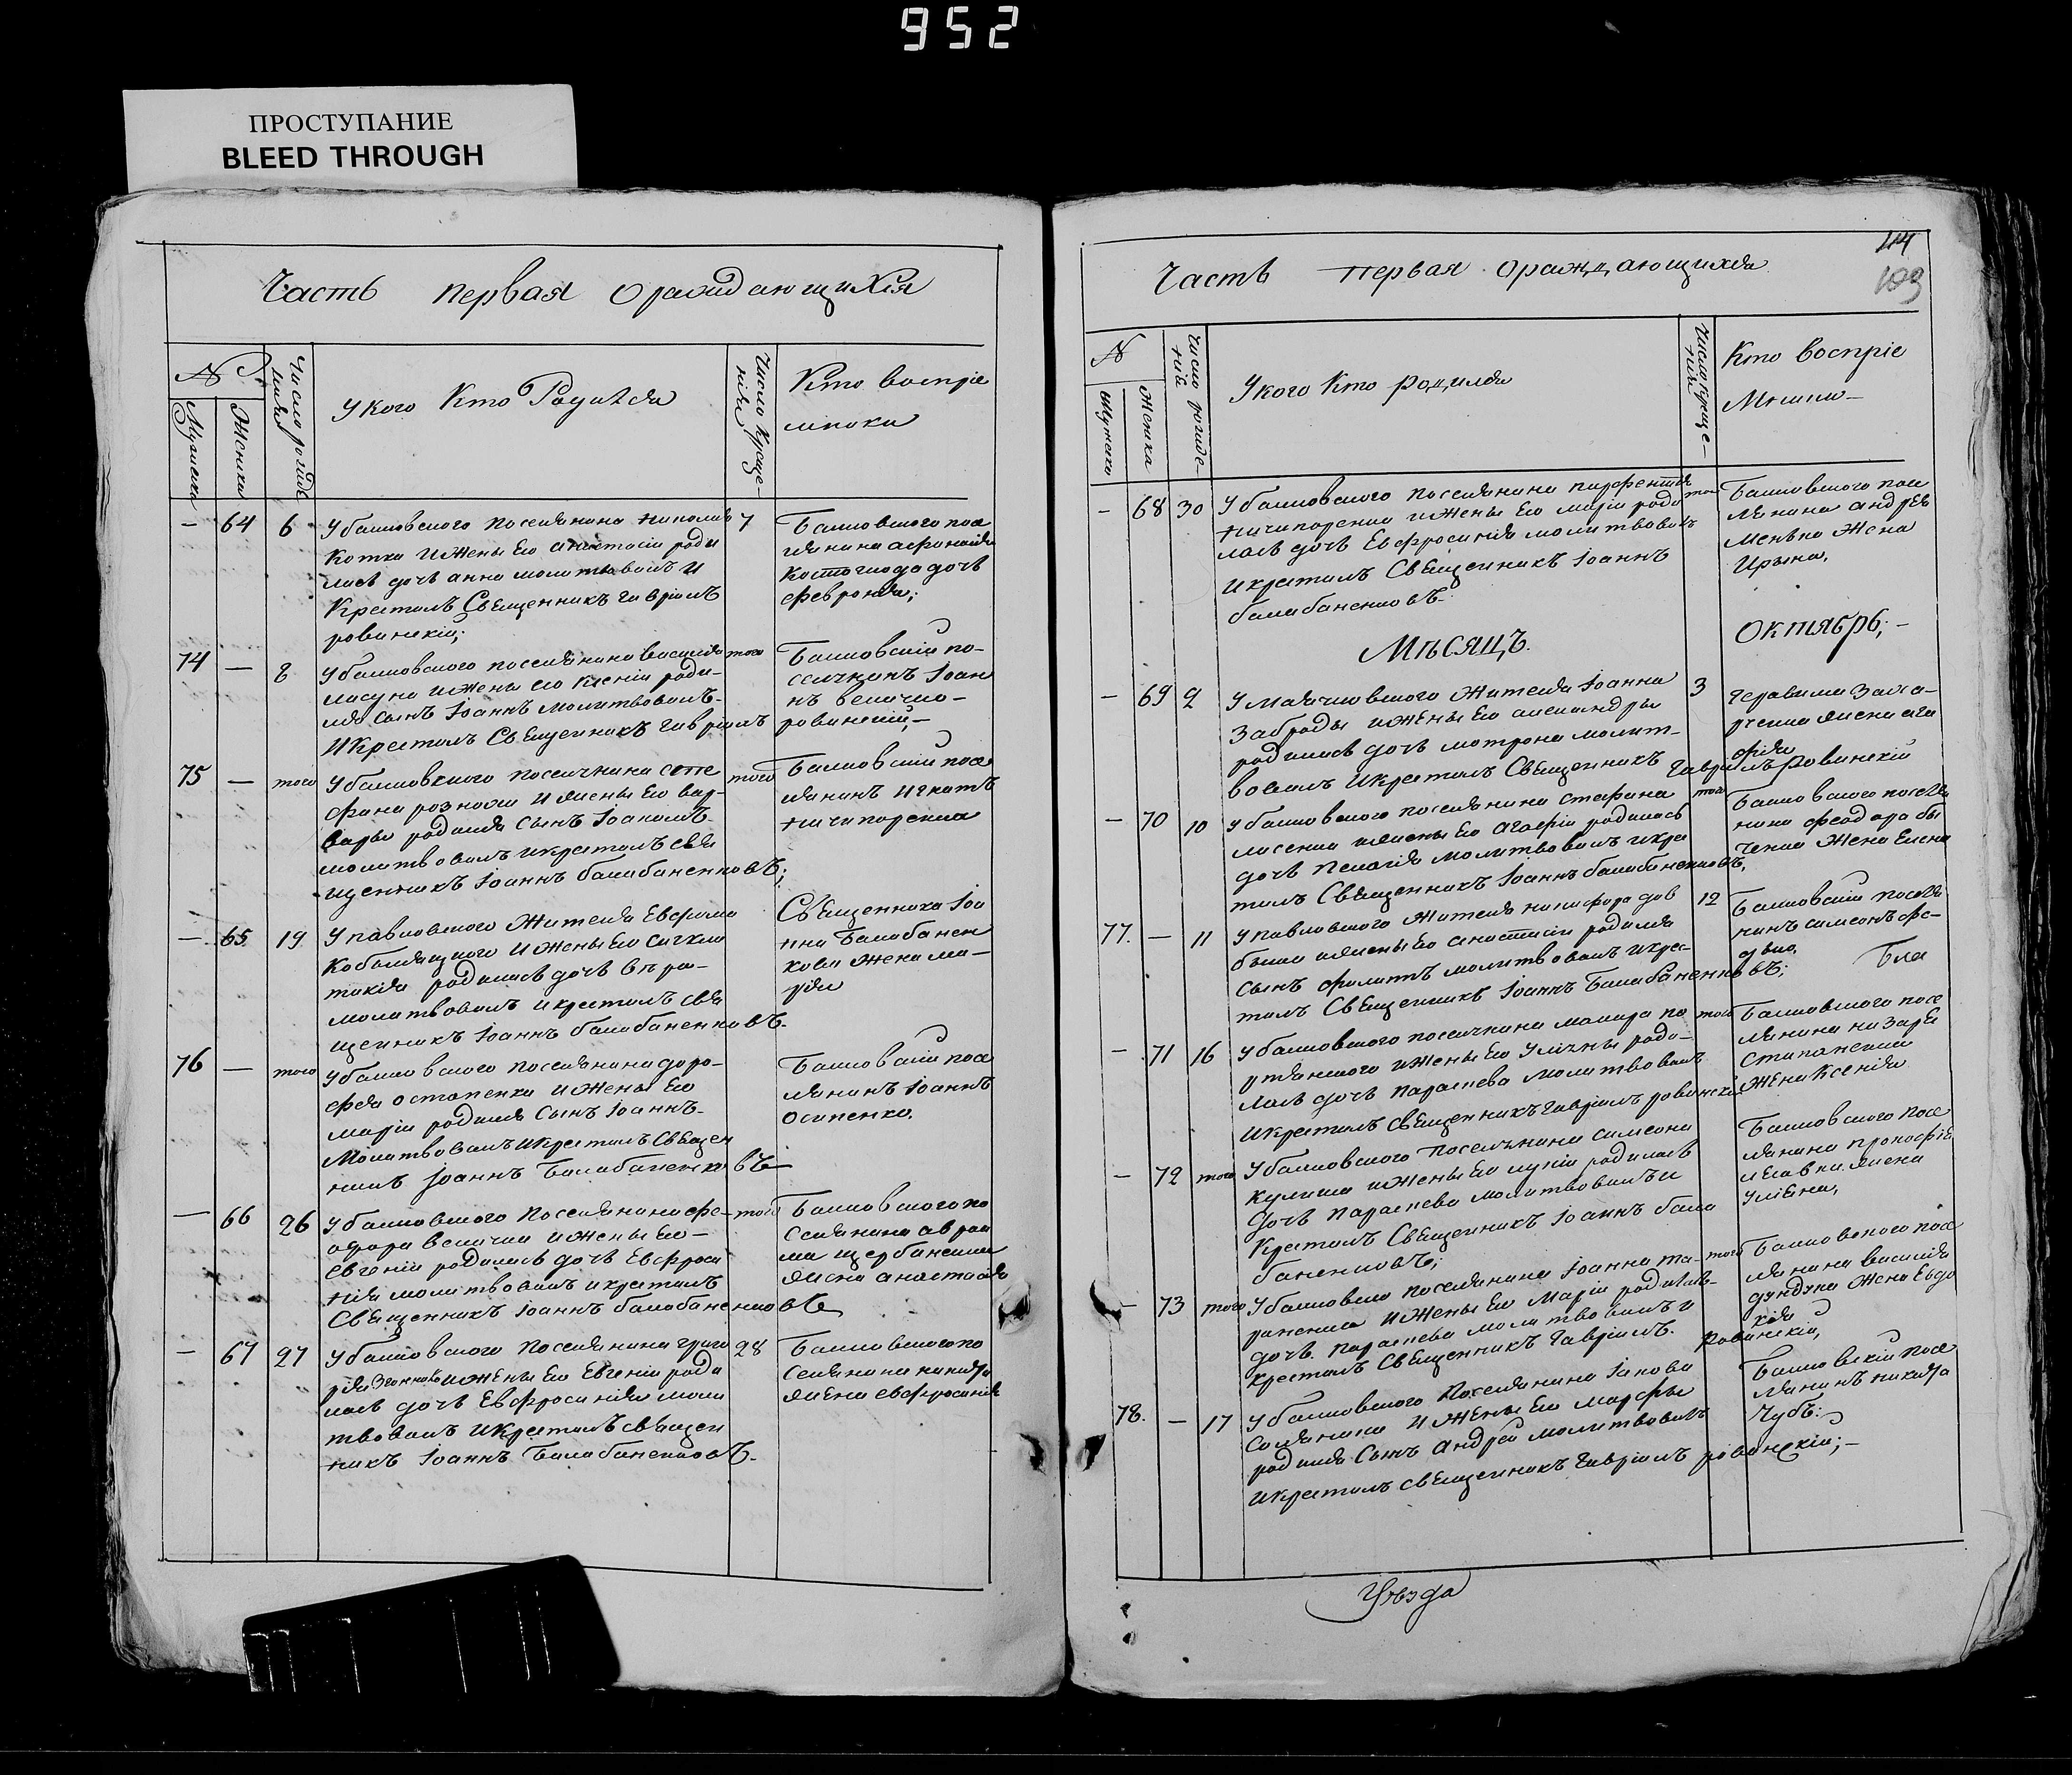 952
ПРОСТУПАНИЕ
BLEED THROUGH
Часть первая ораждающихся
№
Мужска
Женска
Число рожде
ния
У кого Кто Родился
Число Креще-
ния
Кто воспріе
мники
— 64 6 У балковского поселянина Николая 7
Котка и Жены его анастасіи роди
лась дочь анна молитвовалъ и
Крестилъ Священникъ гавріилъ
ровинскій;
Балковского посе
лянина афанасія
дочь
феврония;
74 — 8 У балковского поселянина василия того
и Жены его Ксеніи роди-
лся сынъ Іоаннъ Молитвовалъ-
И Крестилъ Священникъ гавріилъ
Балковскій по-
селянинъ Іоан
нъ величко-
ровинскій,—
75 — того У балковского поселянина сте того
фана и жены его вар-
вары родился сынъ Іоакимъ-
молитвовалъ и крестилъ свя
щенникъ Іоаннъ балабаненковъ;
Балковскій посе
лянинъ игнатъ
ничипоренко
— 65 19 У павловского Жителя Евфима
и Жены его
родилась дочь
молитвовалъ и крестилъ свя
щенникъ Іоаннъ балабаненковъ.
Священника Іоа
нна Балабанен
кова жена ма-
рія
76 — того У балковского поселянина доро-
фея остапенка и Жены его
маріи родился Сынъ Іоаннъ-
Молитвовалъ и Крестилъ Священ
никъ Іоаннъ Балабаненковъ—
Балковскій посе
лянинъ Іоаннъ
Осипенко,
— 66 26 У балковского поселянина фе- того
офора величка и жены его-
Евгеніи родилась дочь Евфроси
нія молитвовалъ и крестилъ
Священникъ Іоаннъ балабаненковъ
Балковского по
селянина авраа
ма щербаненка
жена анастасія
— 67 27 У балковского поселянина григо 28
рія и Жены его Евгеніи роди
лась дочь Евфросинія моли
твовалъ и Крестилъ священ
никъ Іоаннъ Балабаненковъ.
Балковского по
селянина никиты
жена евфросинія
Часть первая ораждающихся
114
103
№
Мужска
Женска
Число рожде-
ній
У кого Кто родился
Число Креще-
ній
Кто воспріе
Мники—
— 68 30 У балковского поселянина парфентія того
Ничипоренка и Жены его маріи роди
лась дочь Евфросинія молитвовалъ
и крестилъ Священникъ Іоаннъ
балабаненковъ.
Балковского посе
лянина андрея
Жена
Ирина,
Мѣсяцъ. Октябрь;—
— 69 2 У маячковского Жителя Іоанна 3
Заброды и Жены его александры
родилась дочь мотрона молит-
вовалъ и Крестилъ Священникъ гавріилъ ровинскій
жена ага
фія
— 70 10 У балковского поселянина стефана того
и жены его агафіи родилась
дочь Пелагія Молитвовалъ и кре
тилъ Священникъ Іоаннъ балабаненковъ,
Балковского поселя
нина феодора бы
ченка Жена Елена
77. — 11 У павловского Жителя никифора дов 12
и жены его анастасіи родился
сынъ филипъ молитвовалъ и кре-
тилъ Священникъ Іоаннъ Балабаненковъ;
Балковскій поселя
нинъ симеонъ
— 71 16 У балковского поселянина макара по того
и жены его роди-
лась дочь параскева Молитвовалъ
и Крестилъ Священникъ гавріилъ ровинскій
Балковского посе
лянина назарія
Степаненка
Жена Ксенія
— 72 того У балковского поселянина симеона
Кулиша и Жены его родилась
дочь параскева молитвовалъ и
Крестилъ Священникъ Іоаннъ бала
баненковъ;
Балковского посе
лянина прокофія
жена
Уліяна,
— 73 того У балковско поселянина Іоанна та- того
раненка и Жены его Маріи родилась-
дочь параскева молитвовалъ и
крестилъ Священникъ гавріилъ. ровинскій,
Балковского посе
лянина василія
дундука Жена Евдо
кія
78. — 17 У балковского Поселянина Іакова
и Жены его Марфы
родился Сынъ Андрей молитвовалъ
и крестилъ священникъ гавріилъ ровинскій;—
Балковскій посе
лянинъ никита
Чубъ:
Уѣзда